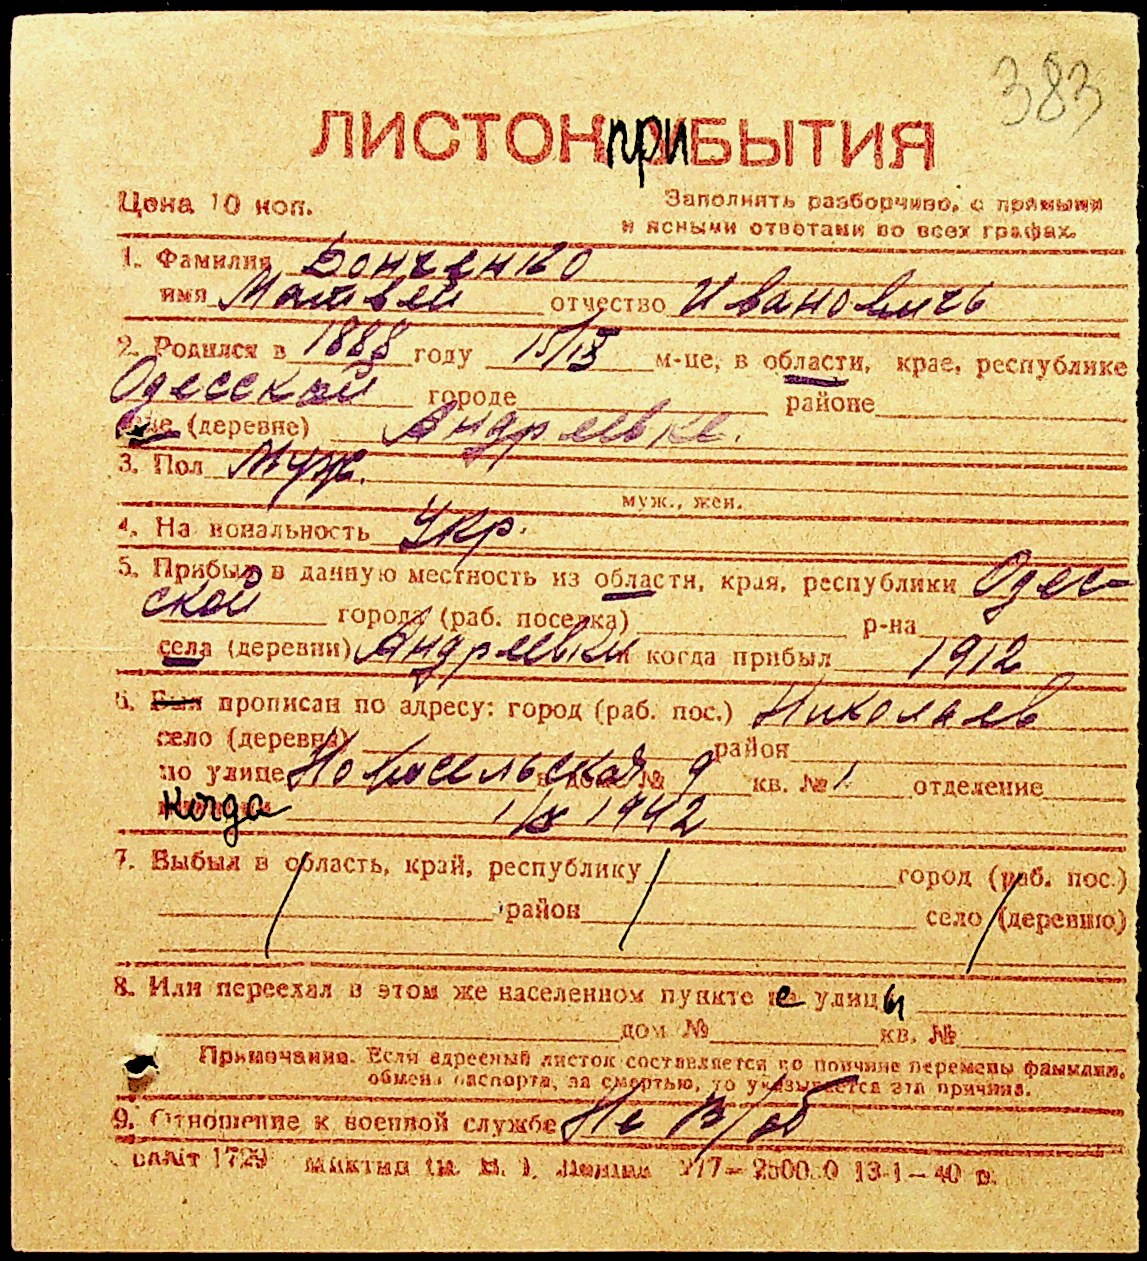 383
ЛИСТОК ПРИБЫТИЯ
Цена 10 коп.
Заполнять разборчиво, с прямыми
и ясными ответами во всех графах.
1. Фамилия Бонченко
имя Матвей отчество Ивановичь
2. Родился в 1888 году 15/IX м-це, в области, крае, республике
Одесской городе районе
селе (деревне) Андреевке.
3. Пол Муж.
муж., жен.
4. Национальность Укр.
5. Прибыл в данную местность из области, края, республики Одес-
ской города (раб. поселка) р-на
села (деревни) Андреевки и когда прибыл 1912
6. Был прописан по адресу: город (раб. пос.) Николаев
село (деревня) район
по улице Новосельская в доме № 9 кв. № 1 отделение
когда 1/X 1942
7. Выбыл в область, край, республику город (раб. пос.)
район село (деревню)
8. Или переехал в этом же населенном пункте с улицы
дом № кв. №
Примечание. Если адресный листок составляется по причине перемены фамилии,
обмена паспорта, за смертью, то указывается эта причина.
9. Отношение к военной службе Не в/об
1729 2500 0 13-1-40 г.